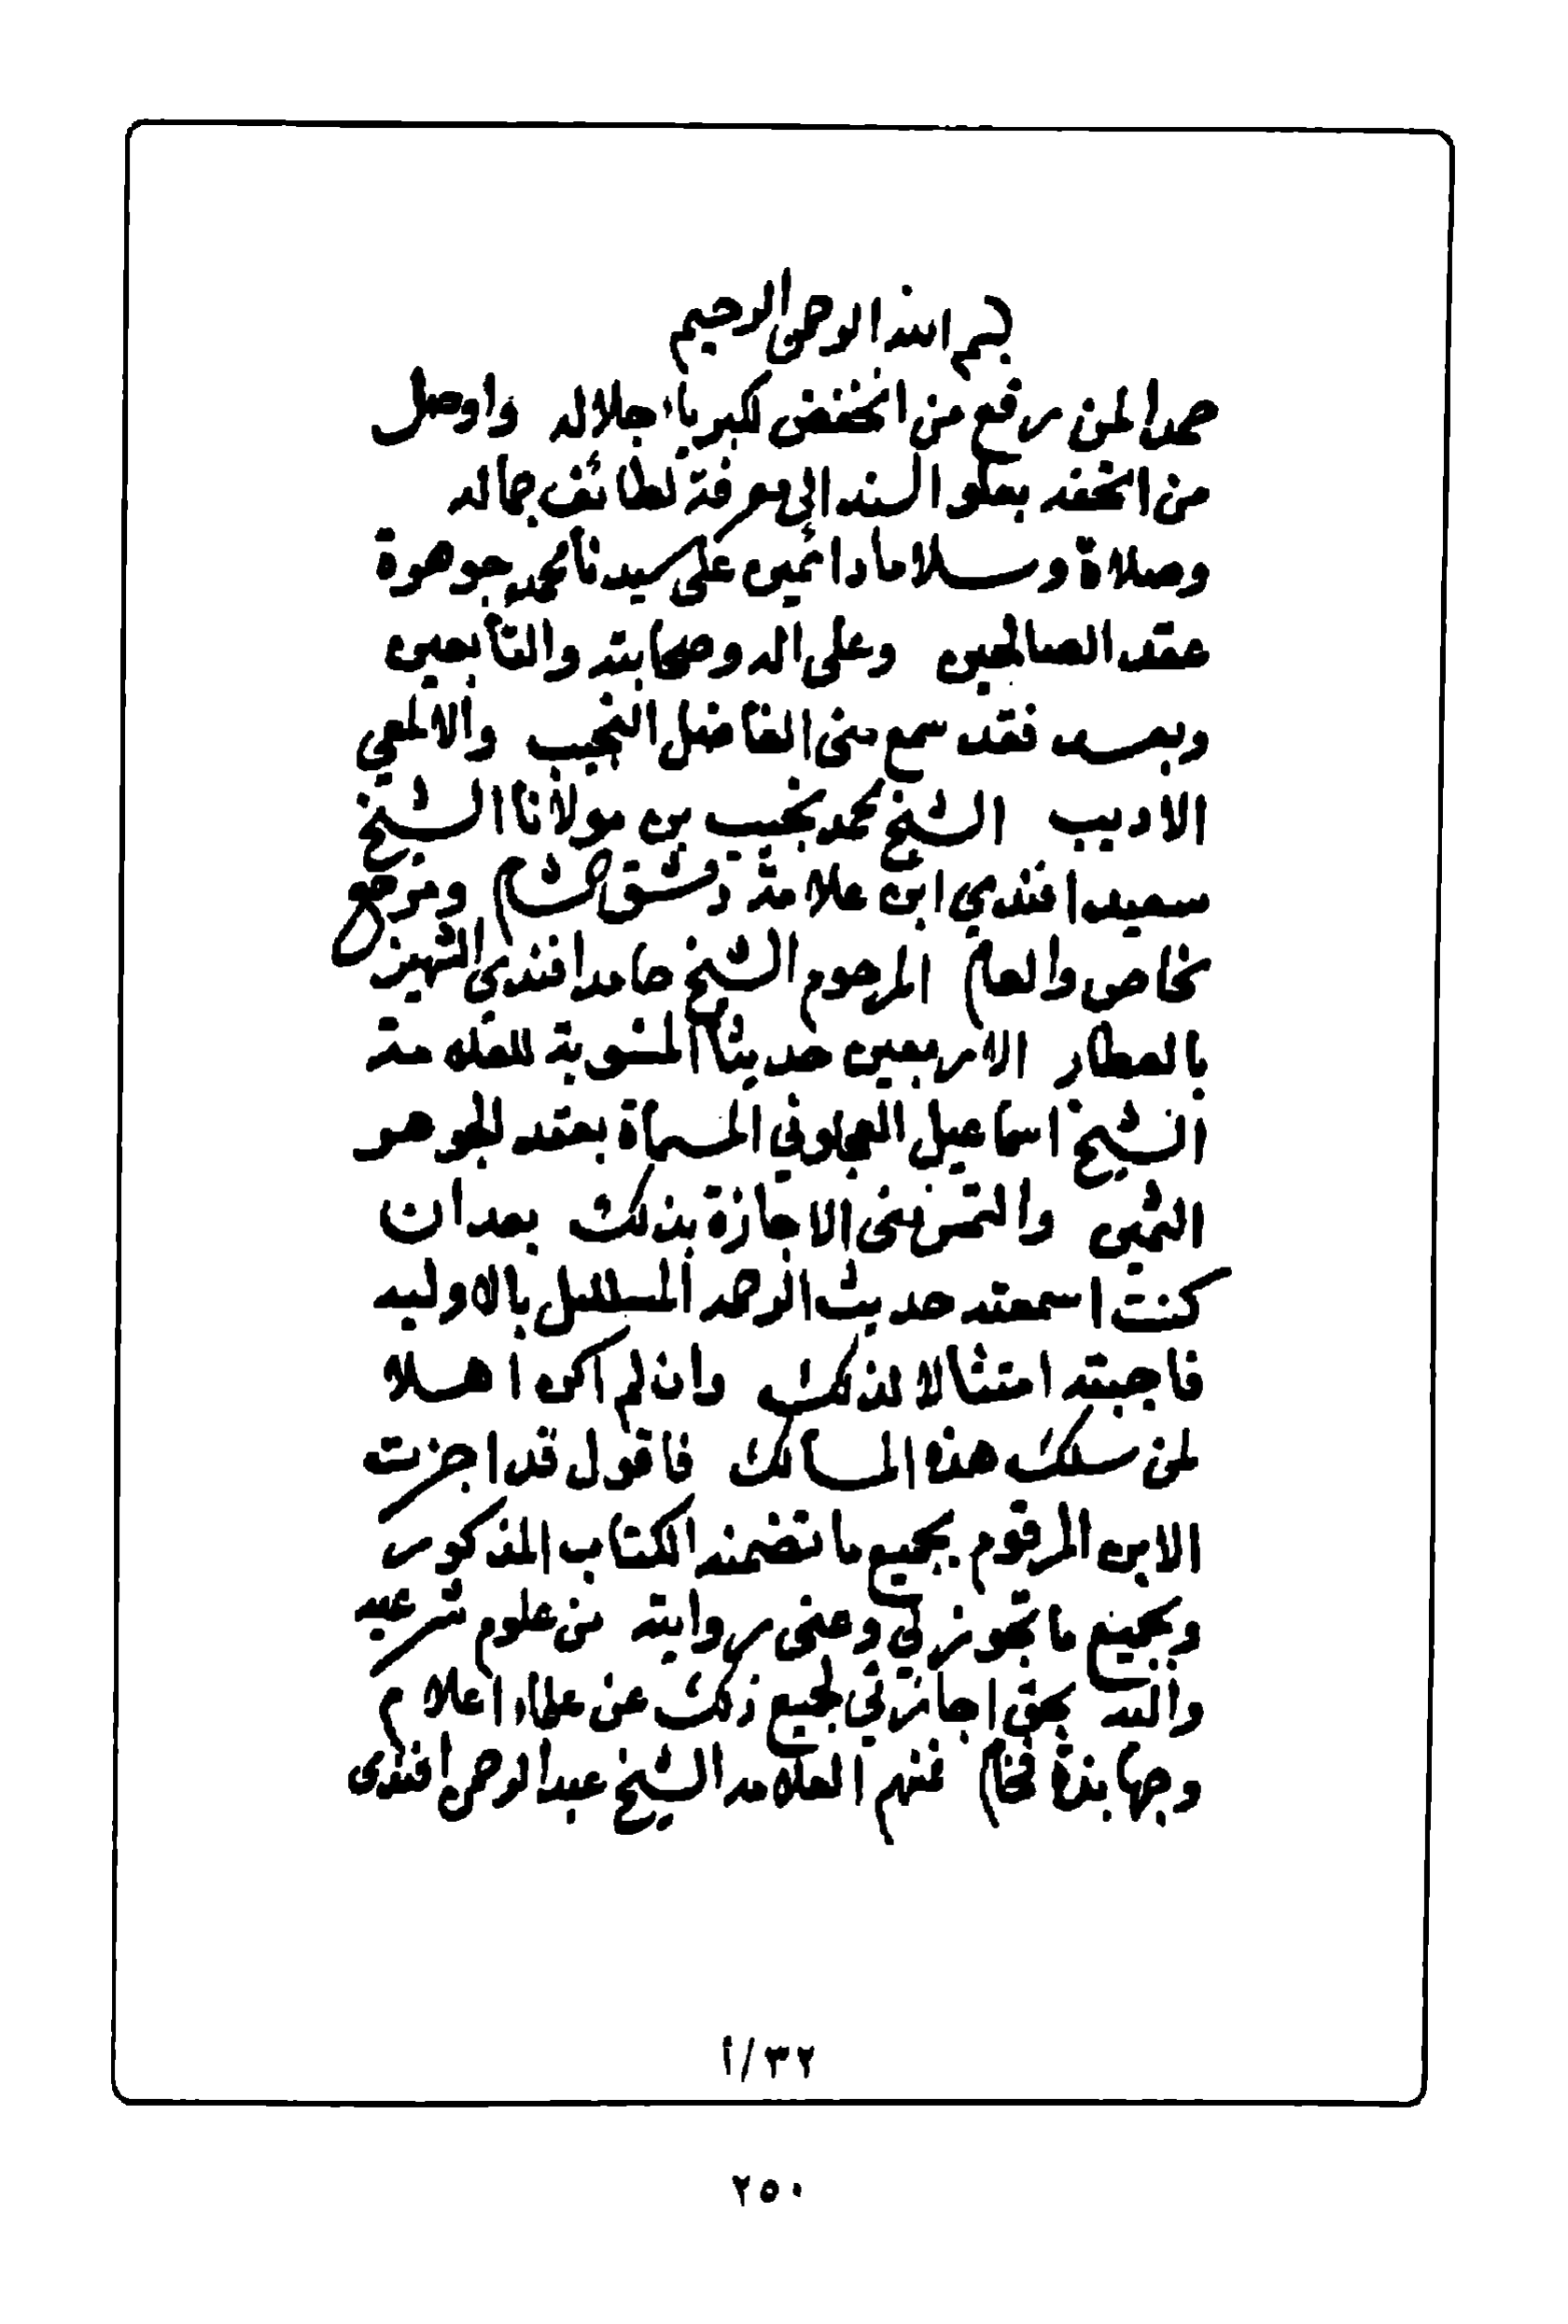 بسم الله الرحمن الرحيم
حمدا لمن رفع من انخفض لكبرياء جلاله واوصل
من اتحفه بعلو السند الى معرفة لطائف جماله
وصلاة وسلاما دائمين على سيدنا محمد جوهرة
عقد الصالحين وعلى اله وصحابته والتابعين
وبعد فقد سمع منى الفاضل النجيب والالمعي
الاديب الشيخ محمد نجيب بن مولانا الشيخ
سعيد افندي ابن علامة دمشق الشام ومرجع
الخاص والعام المرحوم الشيخ حامد افندى الشهير
بالعطار الاربعين حديثا المنسوبة للعلامة
الشيخ اسماعيل العجلوني المسماة بعقد الجوهر
الثمين والتمس منى الاجازة بذلك بعد ان
كنت اسمعته حديث الرحمه المسلسل بالاوليه
فاجبته امتثالا لذلك وان لم اكن اهلا
لمن سلك هذه المسالك فاقول قد اجزت
الابن المرقوم بجميع ما تضمنه الكتاب المذكور
وبجميع ما تجوز لي وعنى روايته من علوم شرعيه
وآليه بحق اجازتي لجميع ذلك عن علماء اعلام
وجهابذة فخام فمنهم العلامه الشيخ عبد الرحمن افندى
٣٢/أ
٢٥٠